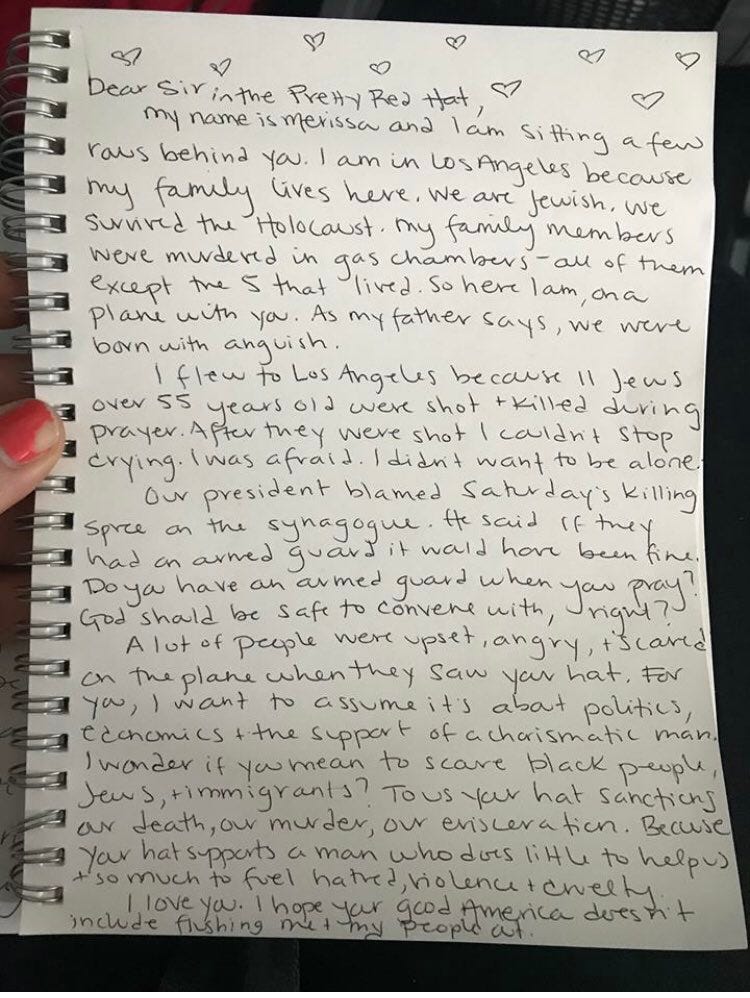 Dear Sir in the Pretty Red Hat,
my name is Merissa and I am sitting a few
rows behind you. I am in Los Angeles because
my family lives here. We are Jewish. We
survived the Holocaust. My family members
were murdered in gas chambers - all of them
except the 5 that lived. So here I am, on a
plane with you. As my father says, we were
born with anguish.
I flew to Los Angeles because 11 Jews
over 55 years old were shot + killed during
prayer. After they were shot I couldn't stop
crying. I was afraid. I didn't want to be alone.
Our president blamed Saturday's killing
spree on the synagogue. He said if they
had an armed guard it would have been fine.
Do you have an armed guard when you pray?
God should be safe to convene with, right?
A lot of people were upset, angry, + scared
on the plane when they saw your hat. For
you, I want to assume it's about politics,
economics + the support of a charismatic man.
I wonder if you mean to scare black people,
Jews, + immigrants? To us your hat sanctions
our death, our murder, our evisceration. Because
your hat supports a man who does little to help us
+ so much to fuel hatred, violence + cruelty.
I love you. I hope your good America doesn't
include flushing me + my people out.